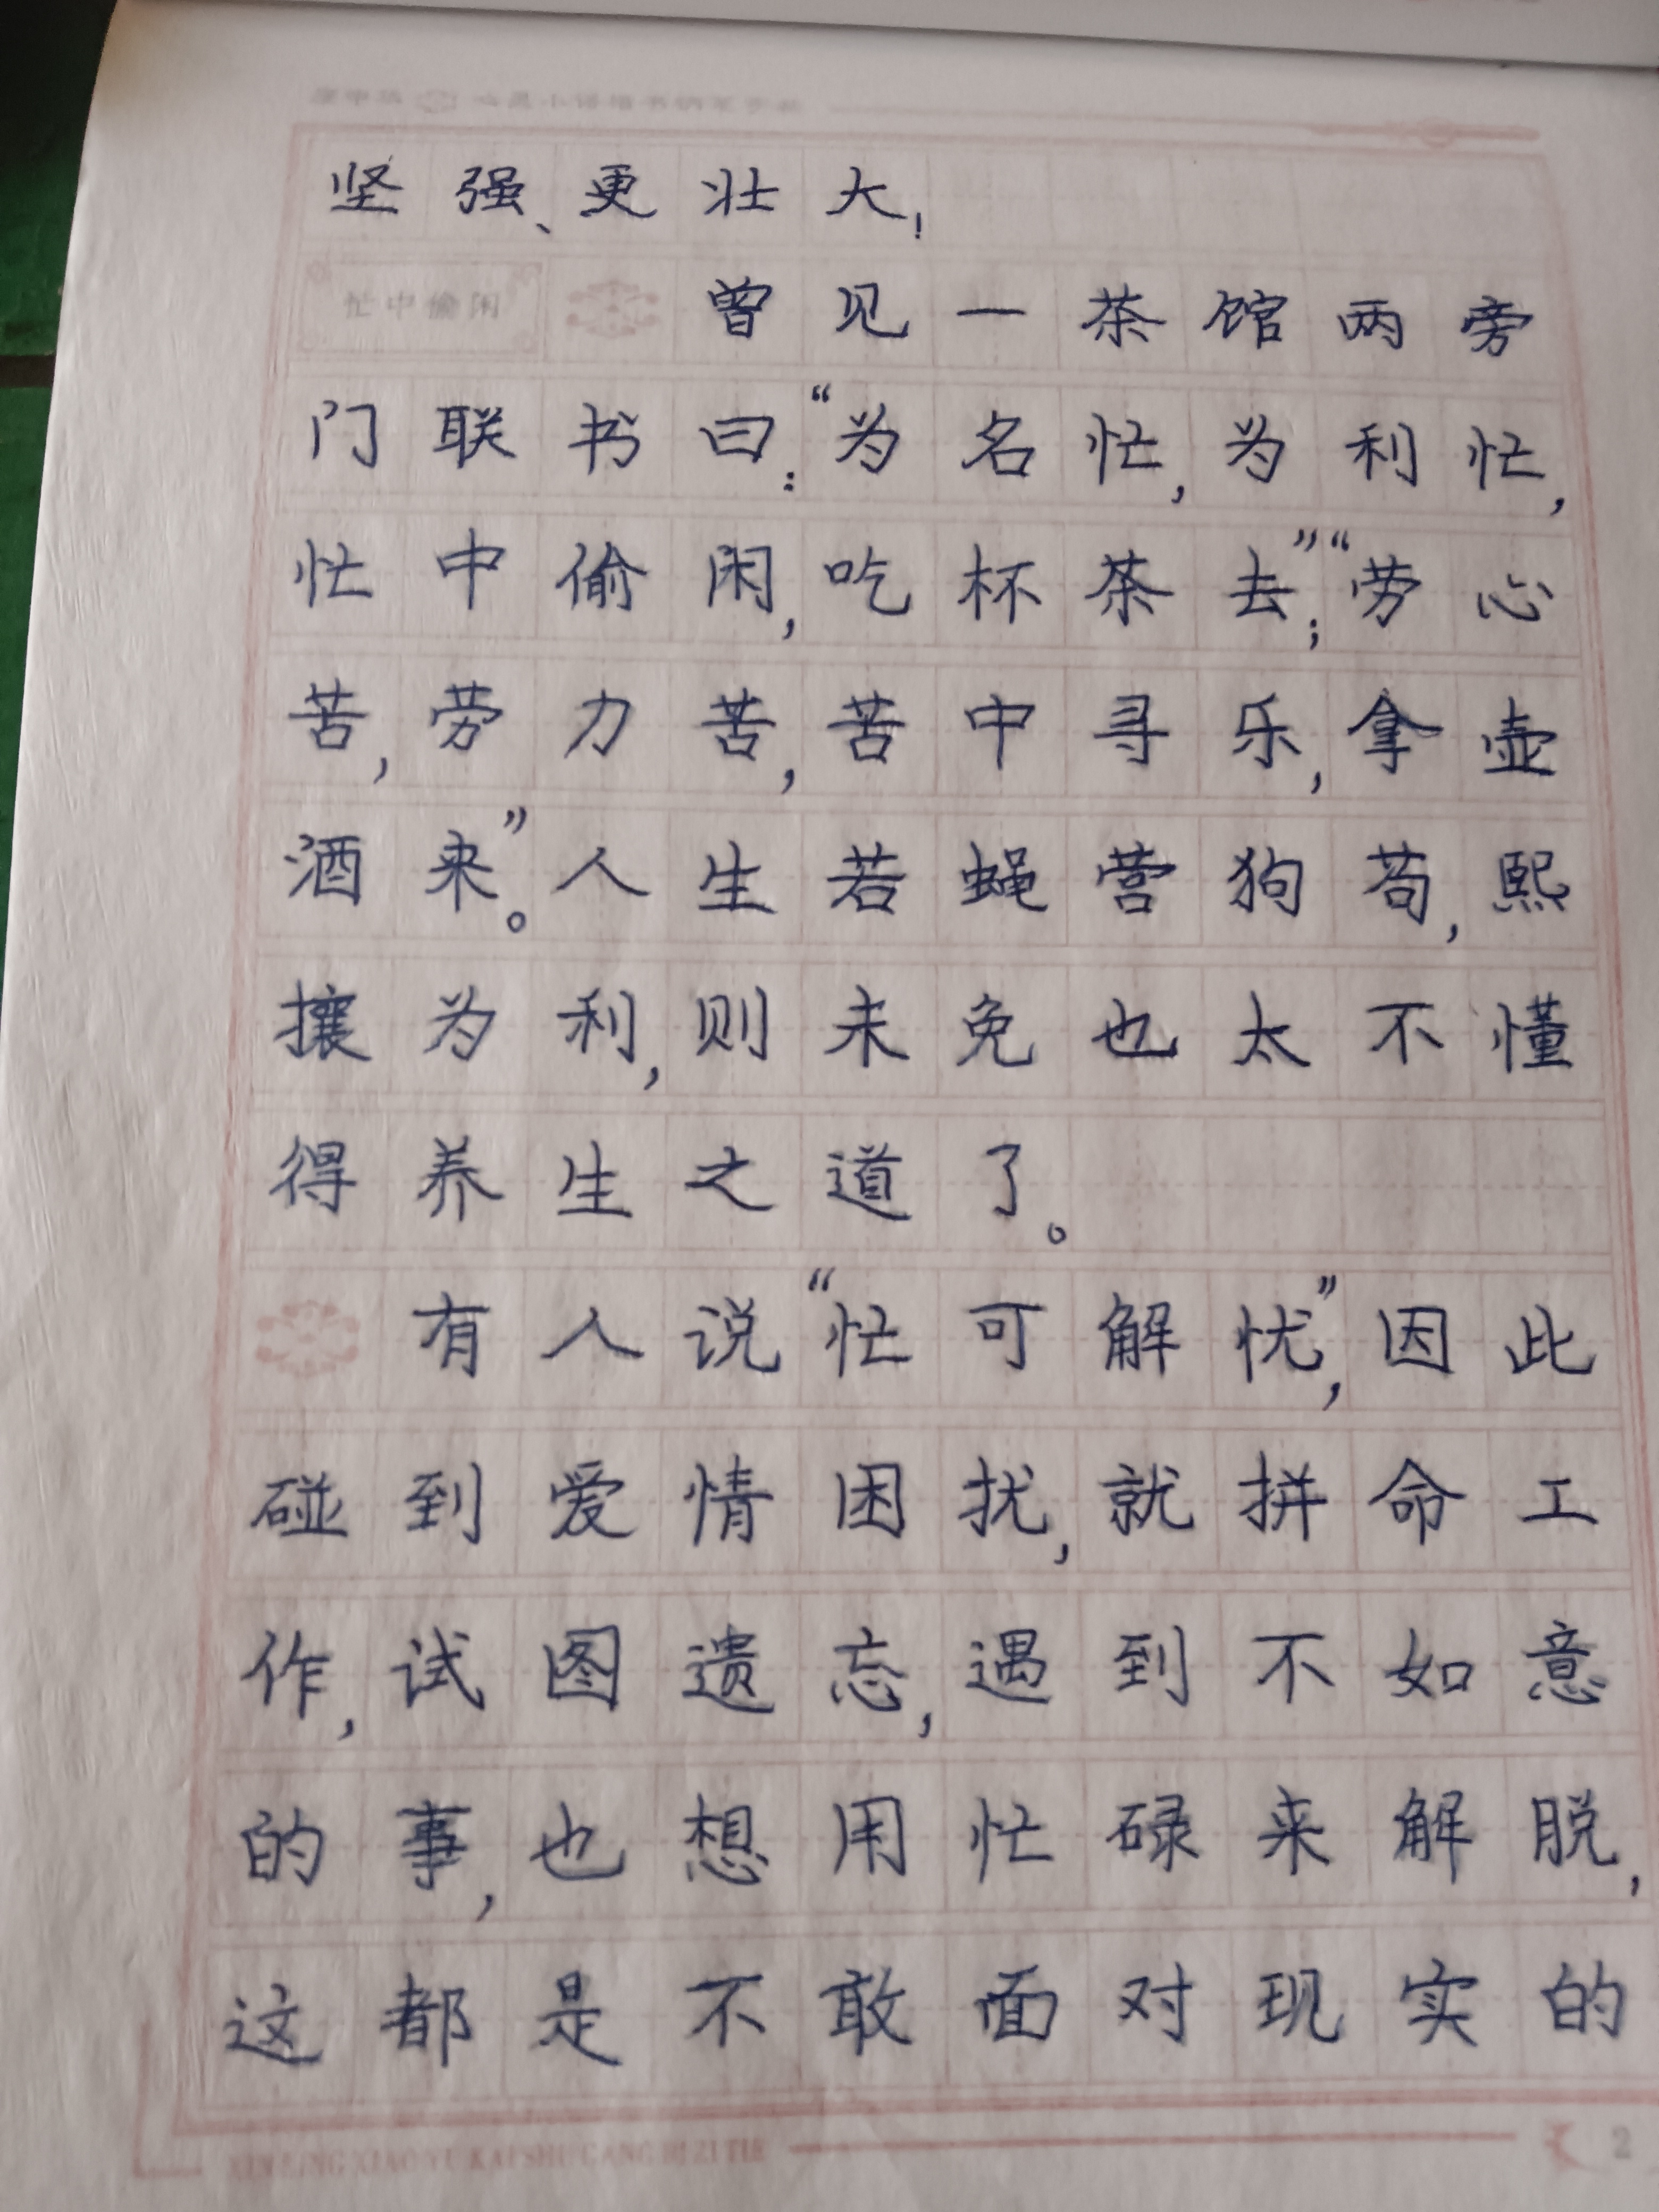 坚强、更壮大!
忙中偷闲 曾见一茶馆两旁
门联书曰:“为名忙,为利忙,
忙中偷闲,吃杯茶去”;“劳心
苦,劳力苦,苦中寻乐,拿壶
酒来”。人生若蝇营狗苟,熙
攘为利,则未免也太不懂
得养生之道了。
有人说“忙可解忧”,因此
碰到爱情困扰,就拼命工
作,试图遗忘,遇到不如意
的事,也想用忙碌来解脱,
这都是不敢面对现实的
XINLING XIAOYU KAISHU GANGBI ZITIE 2